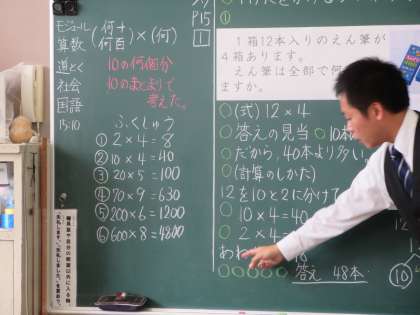 モジュール
算数
道とく
社会
国語
15:10
(何十 何百)×(何)
10の何個分
10のまとまりで
考えた。
ふくしゅう
① 2×4=8
② 10×4=40
③ 20×5=100
④ 70×9=630
⑤ 200×6=1200
⑥ 600×8=4800
P15
1
①
1箱12本入りのえん筆が
4箱あります。
えん筆は全部で何
ますか。
(式) 12×4
答えの見当 10本
だから、40本より多い
(計算のしかた)
12を10と2に分けて
10×4=40
2×4=
あわ
答え 48本
12
10